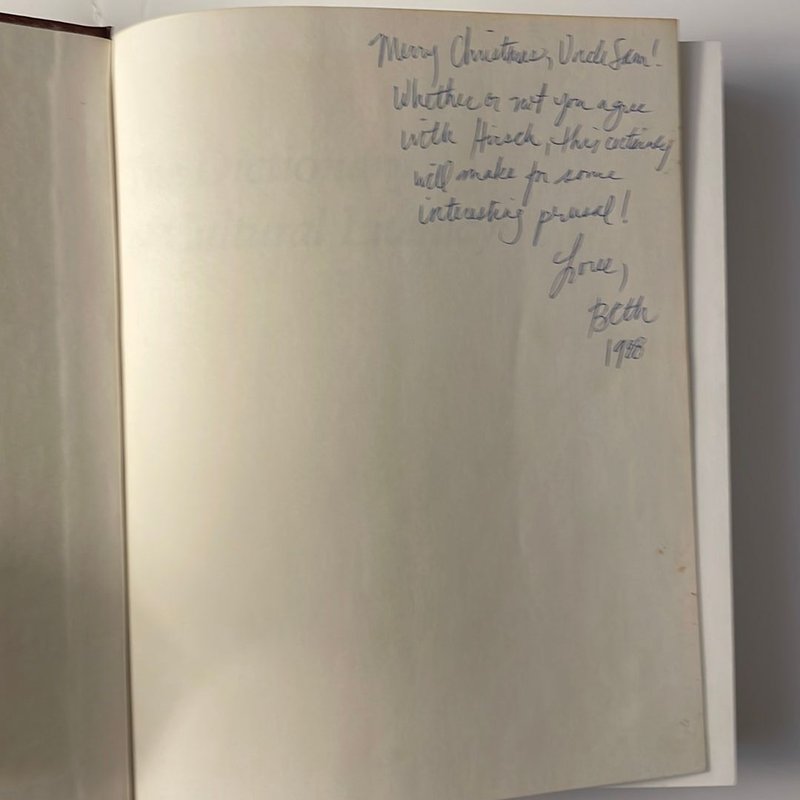 Merry Christmas, Uncle Sam!
Whether or not you agree
with Hirsch, this certainly
will make for some
interesting perusal!
Love,
Beth
1988